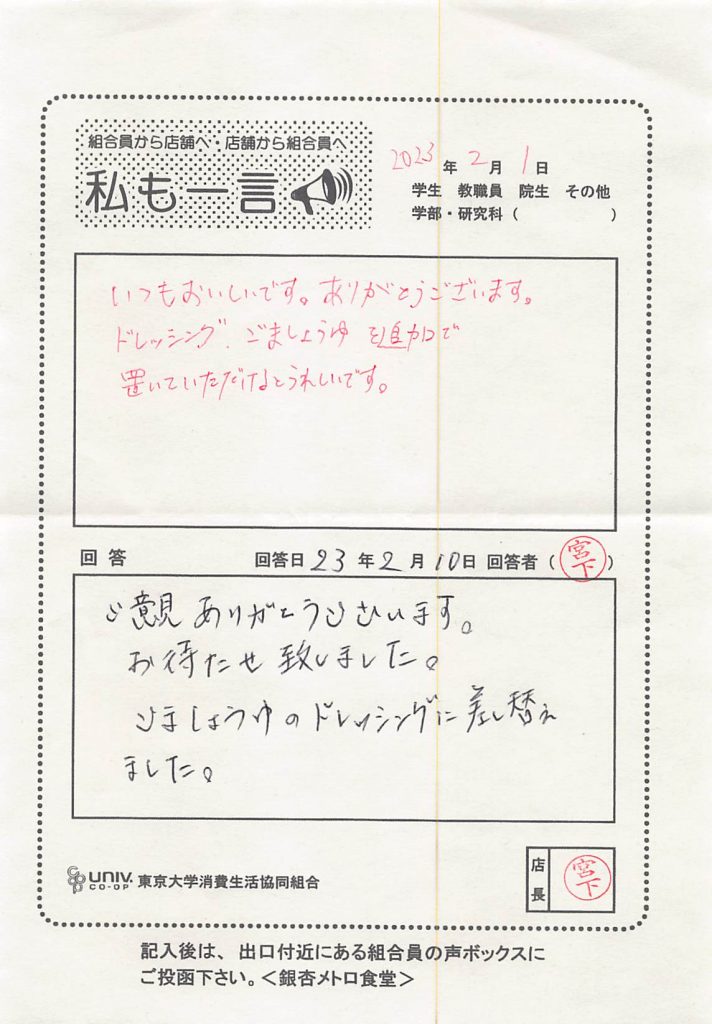 組合員から店舗へ・店舗から組合員へ
私も一言
2023年2月1日
学生 教職員 院生 その他
学部・研究科( )
いつもおいしいです。ありがとうございます。
ドレッシング、ごましょうゆを追加で
置いていただけるとうれしいです。
回答 回答日23年2月10日 回答者(宮下)
ご意見ありがとうございます。
お待たせ致しました。
ごましょうゆのドレッシングに差し替え
ました。
coop UNIV. CO-OP 東京大学消費生活協同組合
店長 宮下
記入後は、出口付近にある組合員の声ボックスに
ご投函下さい。<銀杏メトロ食堂>